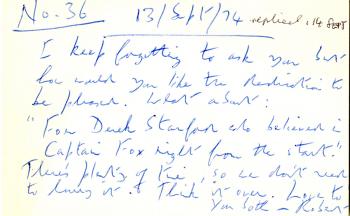 No. 36 13/Sept/74 replied: 14 SEPT
I keep forgetting to ask you but
how would you like the dedication to
be phrased. What about:
"For Derek Stanford who believed in
Captain Fox right from the start."
There's plenty of time, so we don't need
to hurry it. Think it over. Love to
you both — Robert